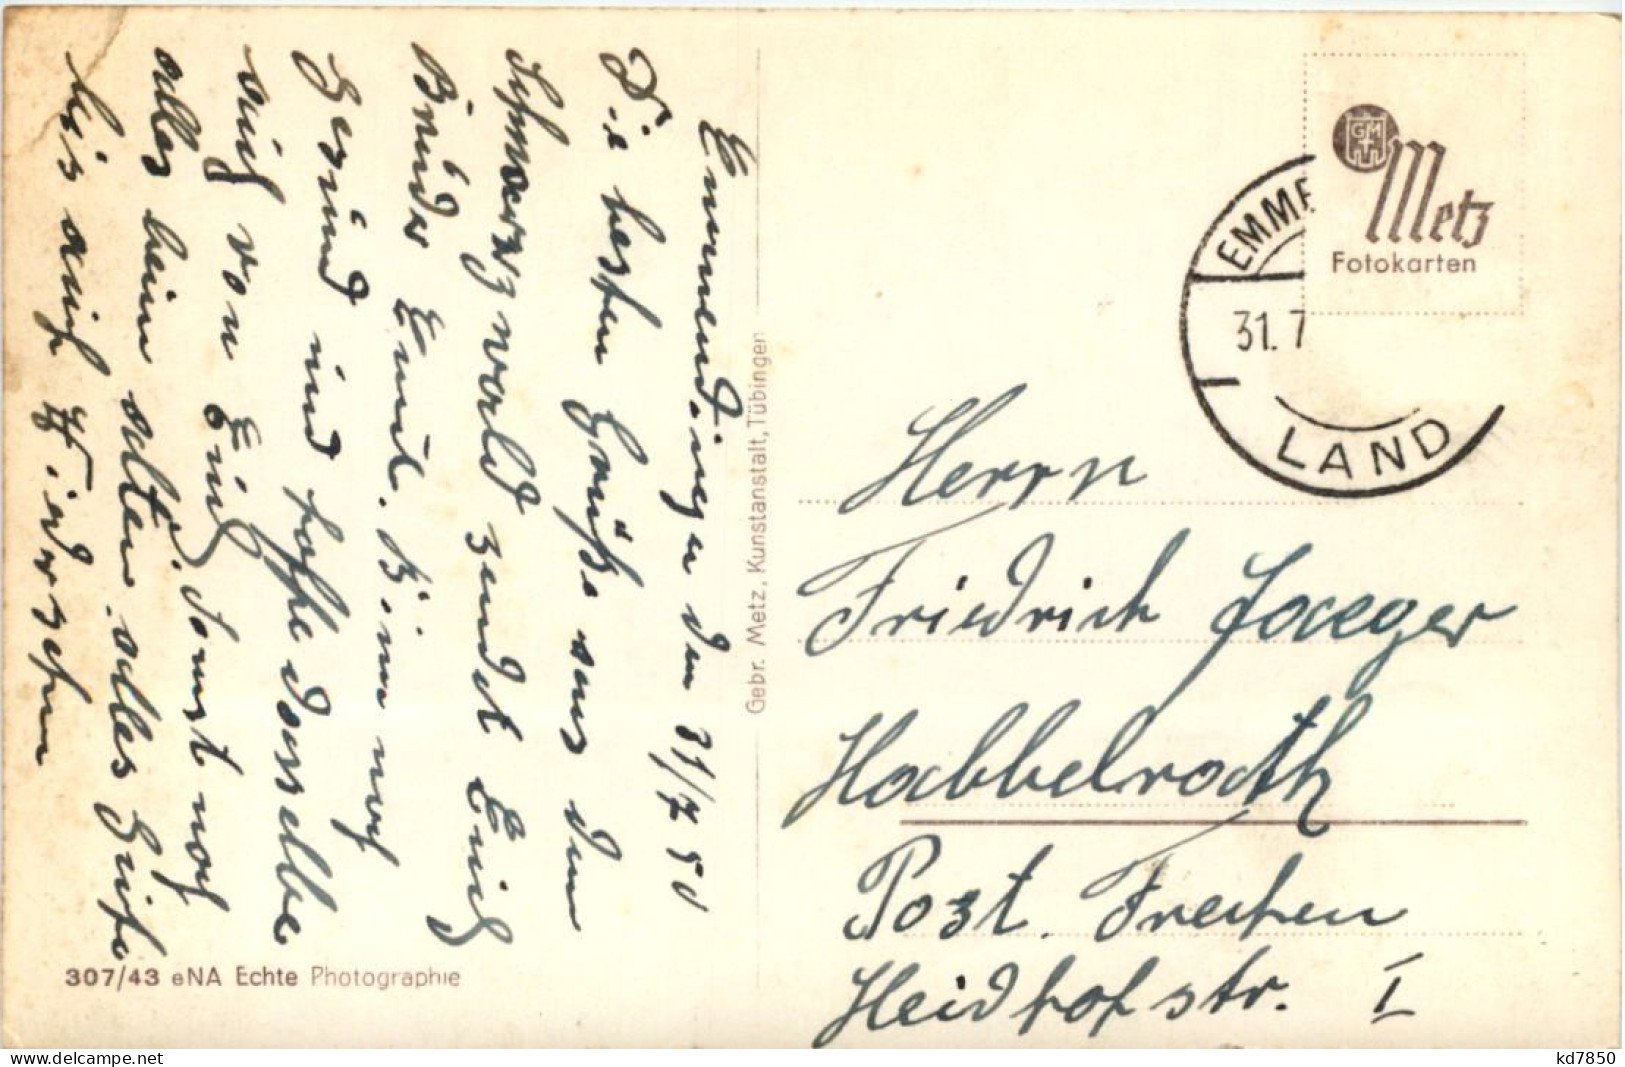 Emmendingen den 31/7 50
Die besten Grüße aus dem
Schwarzwald sendet Euch
Bruder Emil. Bin noch
Gesund und hoffe dasselbe
auch von Euch. Sonst noch
alles beim alten. alles Gute
bis auf Wiedersehen
Gebr. Metz, Kunstanstalt, Tübingen
307/43 eNA Echte Photographie
GM
Metz
Fotokarten
EMME
31.7
LAND
Herrn
Friedrich Jaeger
Habbelrath
Post. Frechen
Heidhofstr. I
kd7850